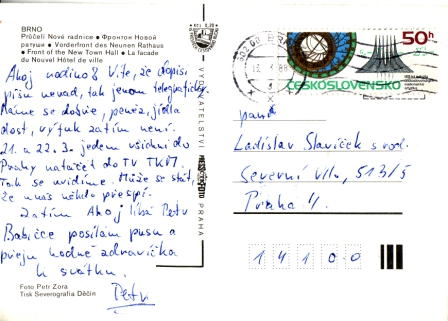 BRNO
Průčelí Nové radnice • Фронтон Новой
ратуши • Vorderfront des Neunen Rathaus
• Front of the New Town Hall • La facade
du Nouvel Hôtel de ville
Ahoj rodino! Víte, že dopisy
píšu nerad, tak jenom telegraficky.
Máme se dobře, peněz, jídla
dost, výtuk zatím není.
21. a 22.3. jedem všichni do
Prahy natáčet do TV TKM.
Tak se uvidíme. Může se stát,
že u nás někdo přespí.
Zatím Ahoj líbá Petr
Babičce posílám pusu a
přeju hodně zdravíčka
k svátku.
Petr
Foto Petr Zora
Tisk Severografia Děčín
VYDAVATELSTVÍ
PRAHA
50h
ČESKOSLOVENSKO
pan
Ladislav Slavíček s rod.
Severní 513/5
Praha 4
1 4 1 0 0